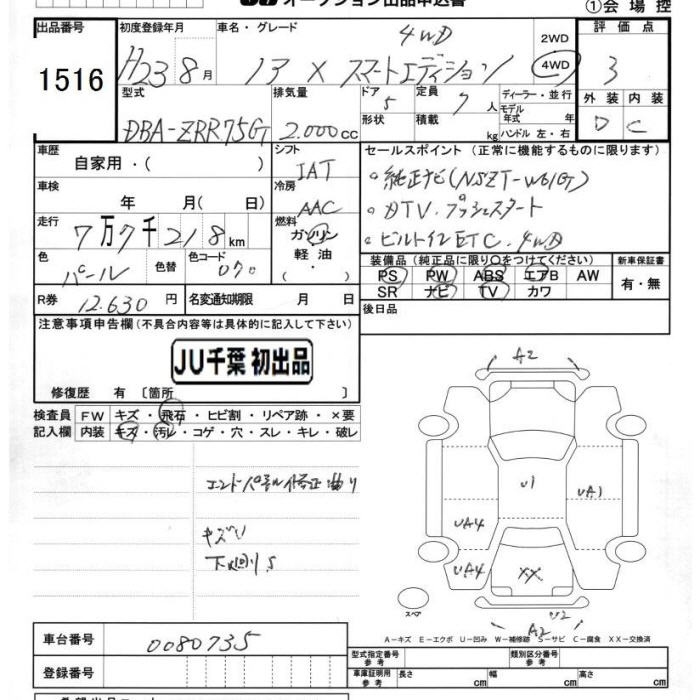 オークション出品申込書
①会場控
出品番号 初度登録年月 車名・グレード 評価点
1516 H23 8月 ノア X スマートエディション 4WD 2WD 4WD 3
型式 排気量 ドア 5 定員 7人 ディーラー・並行 外装 内装
DBA-ZRR75G 2.000cc 形状 積載 kg モデル年式 年 D C
ハンドル 左・右
車歴 自家用・( ) シフト IAT セールスポイント(正常に機能するものに限ります)
車検 年 月(日) 冷房 AAC 。純正ナビ(NSZT-W61G)
走行 7万7千218km 燃料 ガソリン・軽油・ 。DTV.プッシュスタート
。ビルトインETC.4WD
色 パール 色替 色コード 070 装備品(純正品に限り○をつけてください) 新車保証書
PS PW ABS エアB AW 有・無
SR ナビ TV カワ
R券 12.630円 名変通知期限 月 日 後日品
注意事項申告欄(不具合内容等は具体的に記入して下さい)
JU千葉 初出品
修復歴 有 〔箇所 〕
検査員 FW キズ・飛石・ヒビ割・リペア跡・×要
記入欄 内装 キズ・汚レ・コゲ・穴・スレ・キレ・破レ
エンドパネル修正曲り
キズU
下廻りS
A2
U1
UA1
UA4
UA4
XX
U2
A2
スペア
A-キズ E-エクボ U-凹み W-補修跡 S-サビ C-腐食 XX-交換済
車台番号 0080735 型式指定番号 参考 類別区分番号 参考
登録番号 車庫証明用 参考 長さ cm 幅 cm 高さ cm